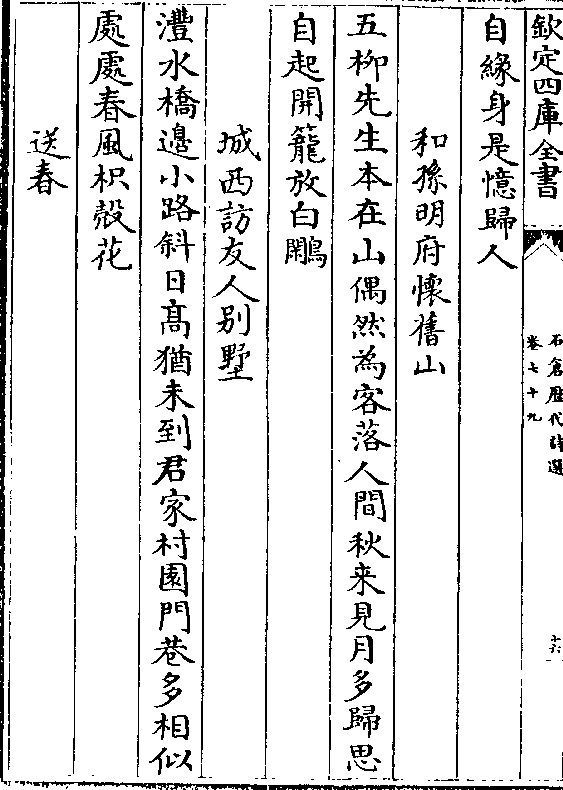 欽定四庫全書
石倉歴代詩選
卷七十九
十六
自緣身是憶歸人
和孫明府懷舊山
五柳先生本在山偶然為客落人間秋来見月多歸思
自起開籠放白鷴
城西訪友人别墅
灃水橋邊小路斜日髙猶未到君家村園門巷多相似
處處春風枳殻花
送春